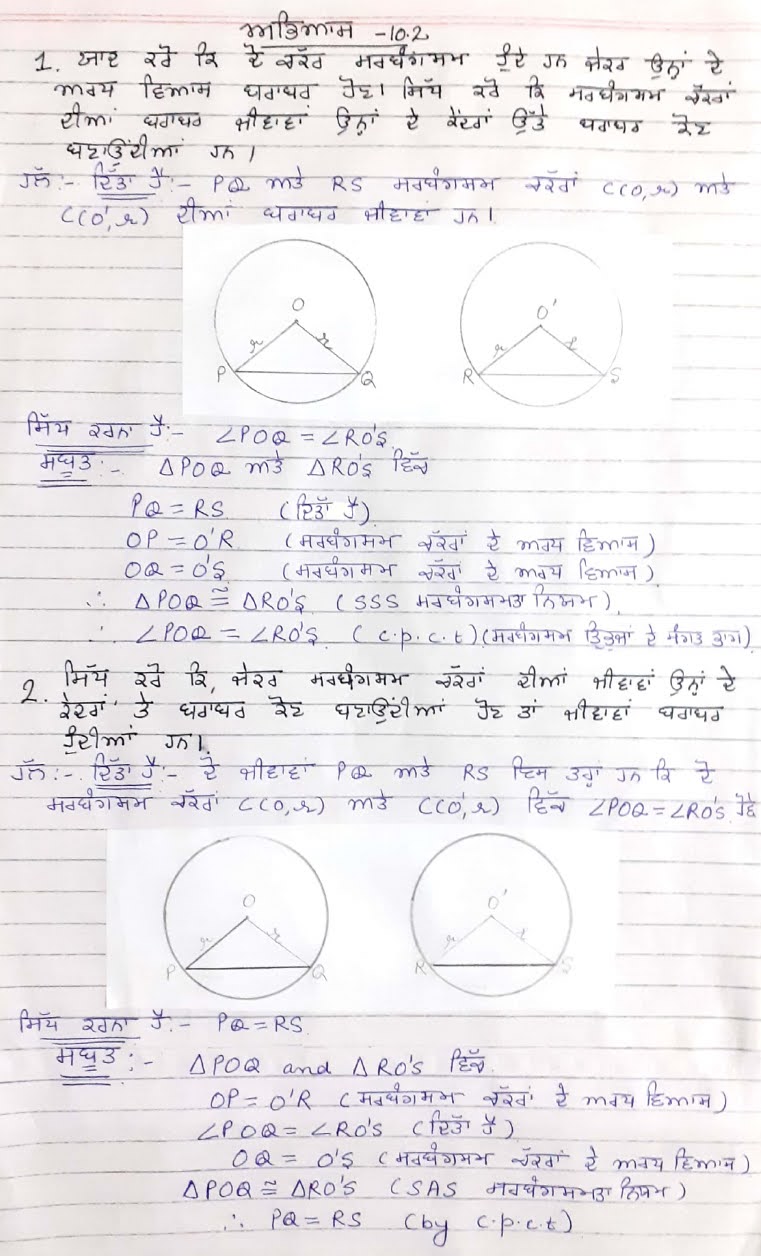 ਅਭਿਆਸ -10.2
1. ਯਾਦ ਕਰੋ ਕਿ ਦੋ ਚੱਕਰ ਸਰਬੰਗਸਮ ਹੁੰਦੇ ਹਨ ਜੇਕਰ ਉਨ੍ਹਾਂ ਦੇ
ਅਰਧ ਵਿਆਸ ਬਰਾਬਰ ਹੋਣ। ਸਿੱਧ ਕਰੋ ਕਿ ਸਰਬੰਗਸਮ ਚੱਕਰਾਂ
ਦੀਆਂ ਬਰਾਬਰ ਜੀਵਾਵਾਂ ਉਨ੍ਹਾਂ ਦੇ ਕੇਂਦਰਾਂ ਉੱਤੇ ਬਰਾਬਰ ਕੋਣ
ਬਣਾਉਂਦੀਆਂ ਹਨ।
ਹੱਲ:- ਦਿੱਤਾ ਹੈ:- PQ ਅਤੇ RS ਸਰਬੰਗਸਮ ਚੱਕਰਾਂ C(O,r) ਅਤੇ
C(O',r) ਦੀਆਂ ਬਰਾਬਰ ਜੀਵਾਵਾਂ ਹਨ।
O O'
r r r r
P Q R S
ਸਿੱਧ ਕਰਨਾ ਹੈ:- ∠POQ = ∠RO'S
ਸਬੂਤ:- △POQ ਅਤੇ △RO'S ਵਿੱਚ
PQ = RS (ਦਿੱਤਾ ਹੈ)
OP = O'R (ਸਰਬੰਗਸਮ ਚੱਕਰਾਂ ਦੇ ਅਰਧ ਵਿਆਸ)
OQ = O'S (ਸਰਬੰਗਸਮ ਚੱਕਰਾਂ ਦੇ ਅਰਧ ਵਿਆਸ)
∴ △POQ ≅ △RO'S (SSS ਸਰਬੰਗਸਮਤਾ ਨਿਯਮ)
∴ ∠POQ = ∠RO'S (c.p.c.t) (ਸਰਬੰਗਸਮ ਤ੍ਰਿਭੁਜਾਂ ਦੇ ਸੰਗਤ ਭਾਗ)
2. ਸਿੱਧ ਕਰੋ ਕਿ, ਜੇਕਰ ਸਰਬੰਗਸਮ ਚੱਕਰਾਂ ਦੀਆਂ ਜੀਵਾਵਾਂ ਉਨ੍ਹਾਂ ਦੇ
ਕੇਂਦਰਾਂ 'ਤੇ ਬਰਾਬਰ ਕੋਣ ਬਣਾਉਂਦੀਆਂ ਹੋਣ ਤਾਂ ਜੀਵਾਵਾਂ ਬਰਾਬਰ
ਹੁੰਦੀਆਂ ਹਨ।
ਹੱਲ:- ਦਿੱਤਾ ਹੈ:- ਦੋ ਜੀਵਾਵਾਂ PQ ਅਤੇ RS ਇਸ ਤਰ੍ਹਾਂ ਹਨ ਕਿ ਦੋ
ਸਰਬੰਗਸਮ ਚੱਕਰਾਂ C(O,r) ਅਤੇ C(O',r) ਵਿੱਚ ∠POQ = ∠RO'S ਹੈ
O O'
r r r r
P Q R S
ਸਿੱਧ ਕਰਨਾ ਹੈ:- PQ = RS
ਸਬੂਤ:- △POQ and △RO'S ਵਿੱਚ
OP = O'R (ਸਰਬੰਗਸਮ ਚੱਕਰਾਂ ਦੇ ਅਰਧ ਵਿਆਸ)
∠POQ = ∠RO'S (ਦਿੱਤਾ ਹੈ)
OQ = O'S (ਸਰਬੰਗਸਮ ਚੱਕਰਾਂ ਦੇ ਅਰਧ ਵਿਆਸ)
△POQ ≅ △RO'S (SAS ਸਰਬੰਗਸਮਤਾ ਨਿਯਮ)
∴ PQ = RS (by c.p.c.t)